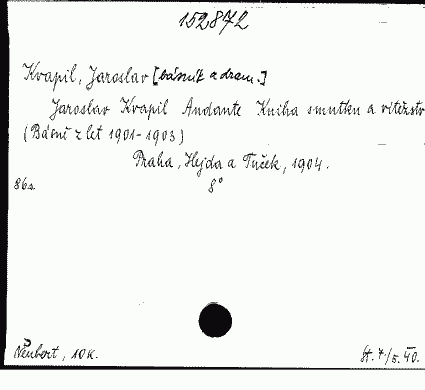 152872
Kvapil, Jaroslav [básník a dram.]
Jaroslav Kvapil Andante Kniha smutku a vítězstv
(Básně z let 1901-1903)
Praha, Hejda a Tuček, 1904.
86s. 8°
Neubert, 10K. St. 7/5. 40.